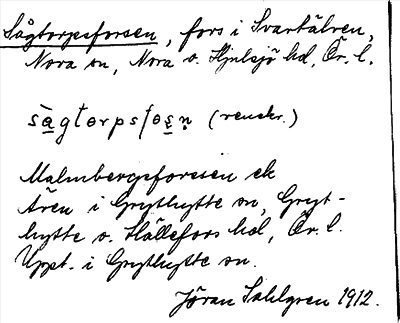 Sågtorpsforsen, fors i Svartälven,
Nora sn, Nora o. Hjulsjö hd, Ör. l.
sågtorpsfosn (renskr.)
Malmbergsforsen ek
Åren i Grythytte sn, Gryt-
hytte o. Hällefors hd, Ör. l.
Uppt. i Grythytte sn.
Jöran Sahlgren 1912.